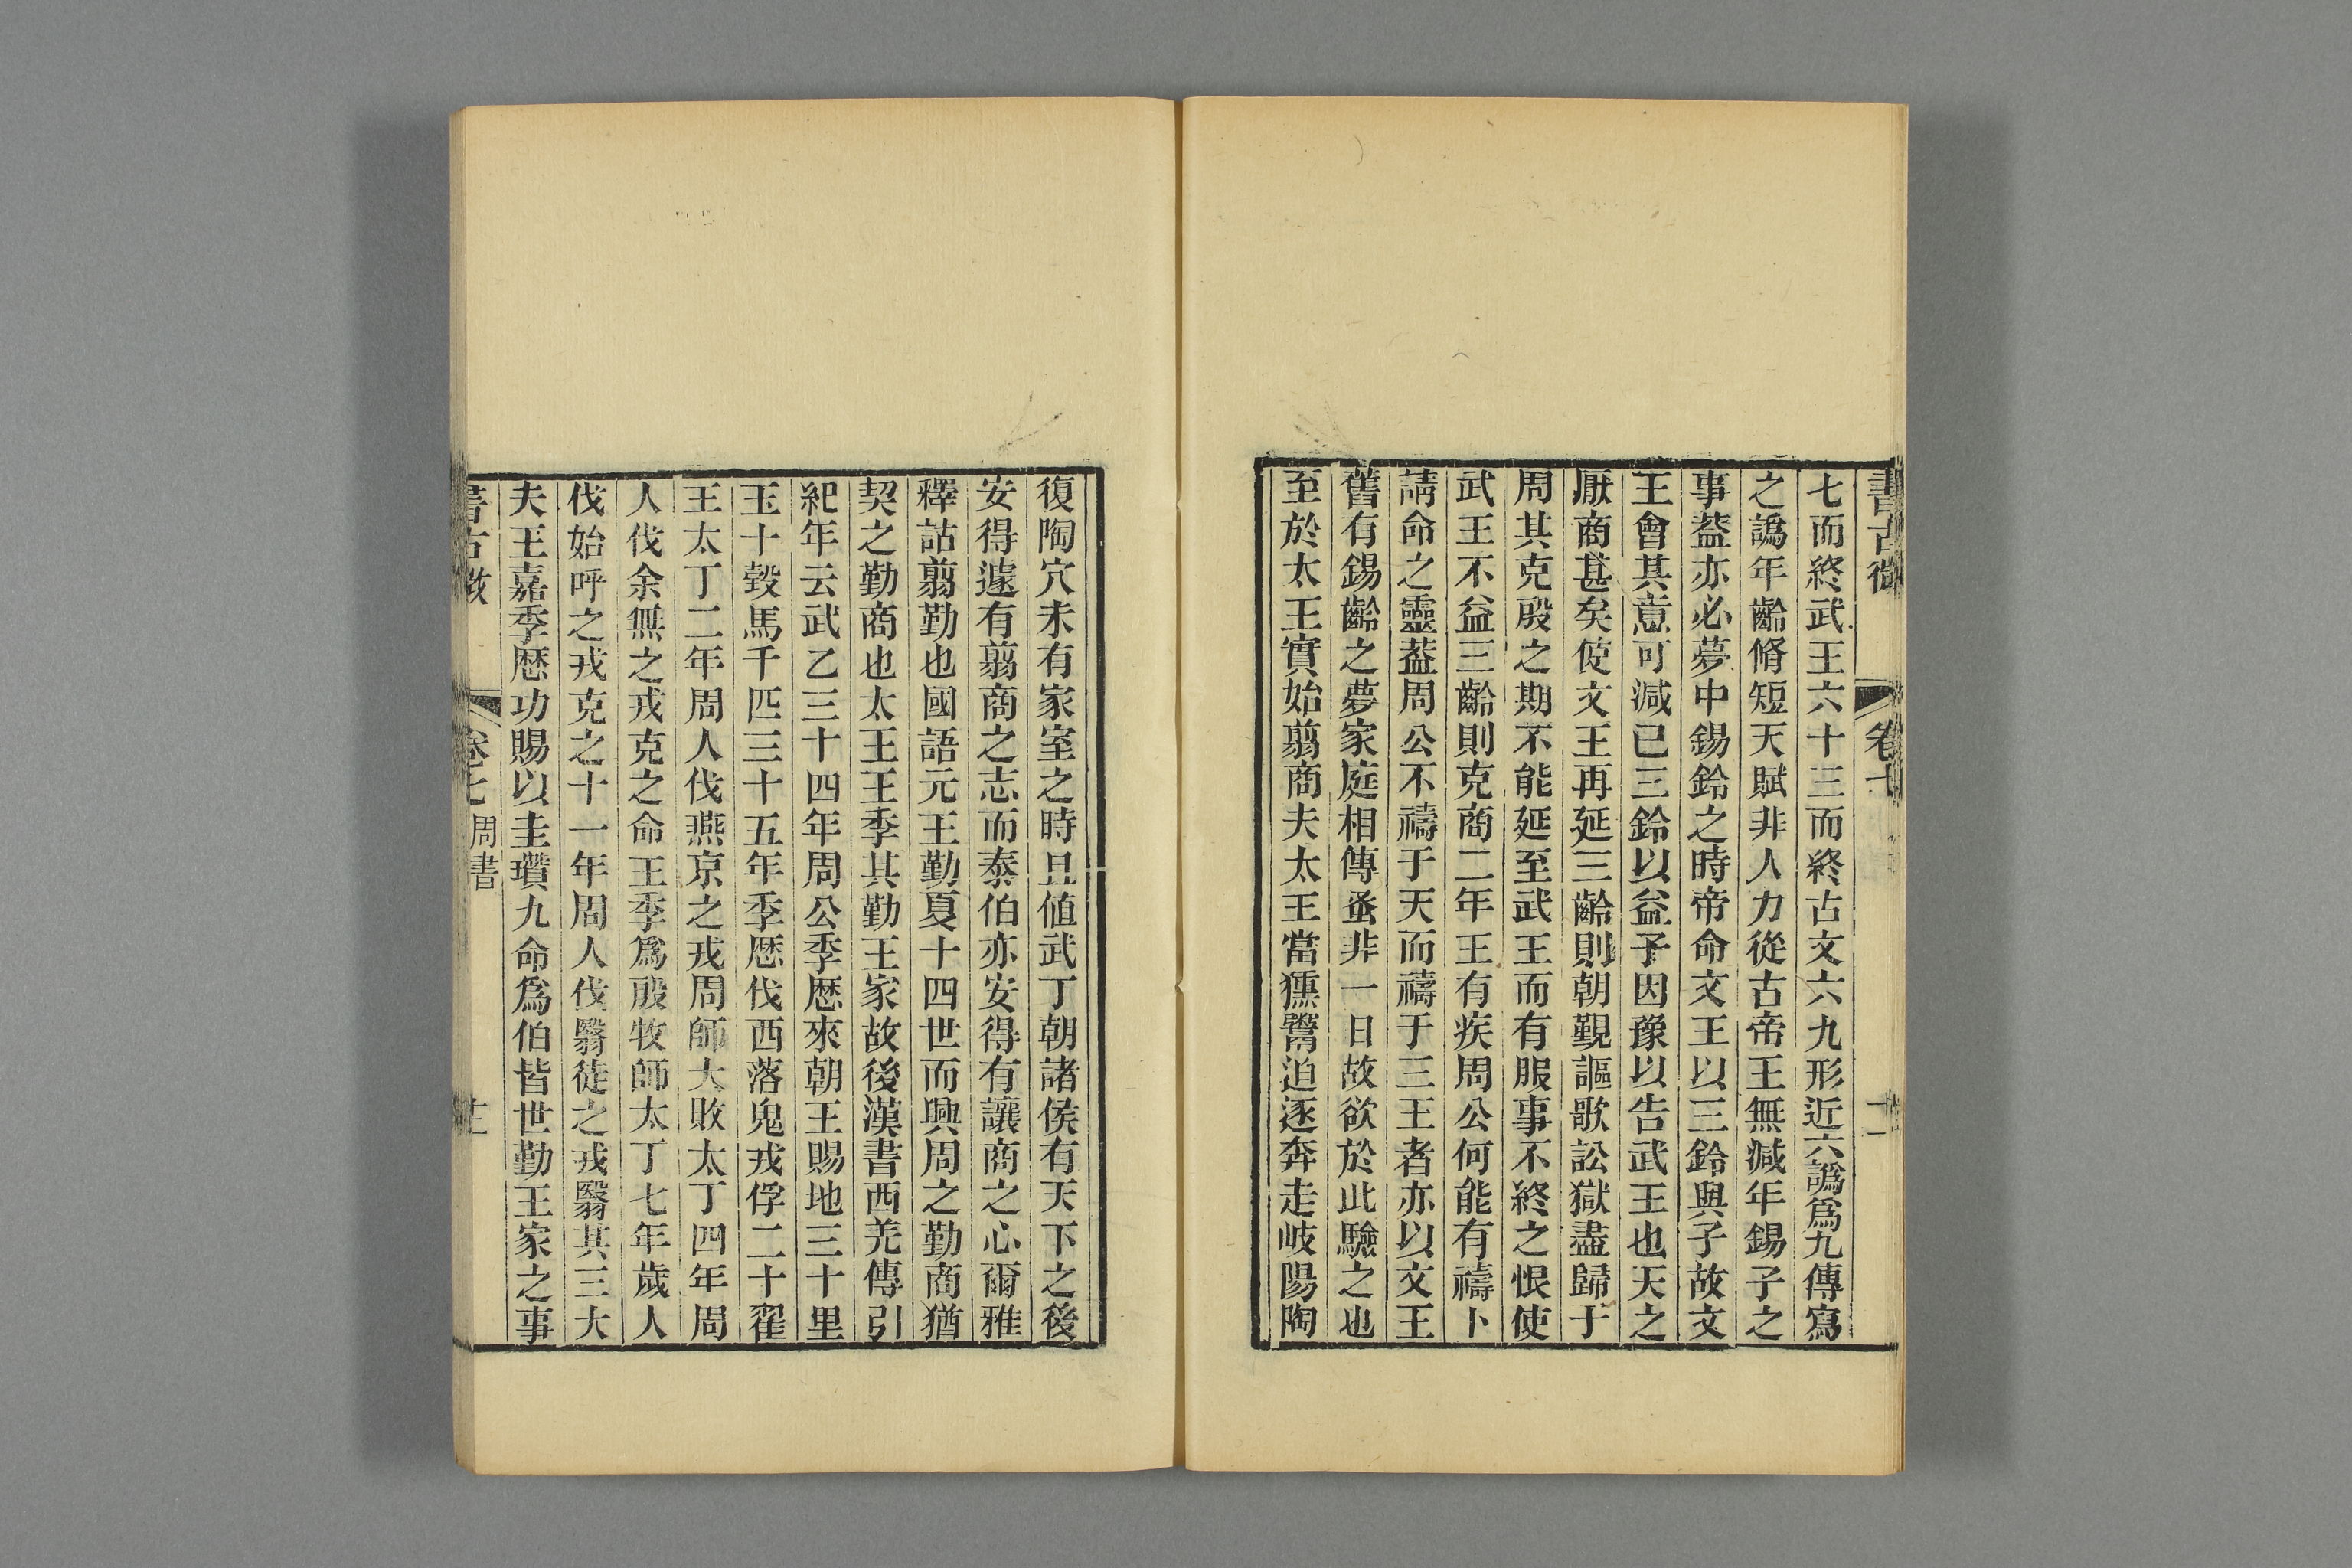 書古微 卷七
七而終武王六十三而終古文六九形近六譌爲九傳寫
之譌年齡脩短天賦非人力從古帝王無減年錫子之
事葢亦必夢中錫鈴之時帝命文王以三鈴與子故文
王會其意可減已三鈴以益予因豫以告武王也天之
厭商甚矣使文王再延三齡則朝覲謳歌訟獄盡歸于
周其克殷之期不能延至武王而有服事不終之恨使
武王不益三齡則克商二年王有疾周公何能有禱卜
請命之靈葢周公不禱于天而禱于三王者亦以文王
舊有錫齡之夢家庭相傳蚤非一日故欲於此驗之也
至於太王實始翦商夫太王當獯鬻迫逐奔走岐陽陶
復陶穴未有家室之時且值武丁朝諸侯有天下之後
安得遽有翦商之志而泰伯亦安得有讓商之心爾雅
釋詁翦勤也國語元王勤夏十四世而興周之勤商猶
契之勤商也太王王季其勤王家故後漢書西羌傳引
紀年云武乙三十四年周公季歷來朝王賜地三十里
玉十瑴馬千匹三十五年季歷伐西落鬼戎俘二十翟
王太丁二年周人伐燕京之戎周師大敗太丁四年周
人伐余無之戎克之命王季爲殷牧師太丁七年歲人
伐始呼之戎克之十一年周人伐翳徒之戎翳其三大
夫王嘉季歷功賜以圭瓚九命爲伯皆世勤王家之事
書古微 卷七 周書